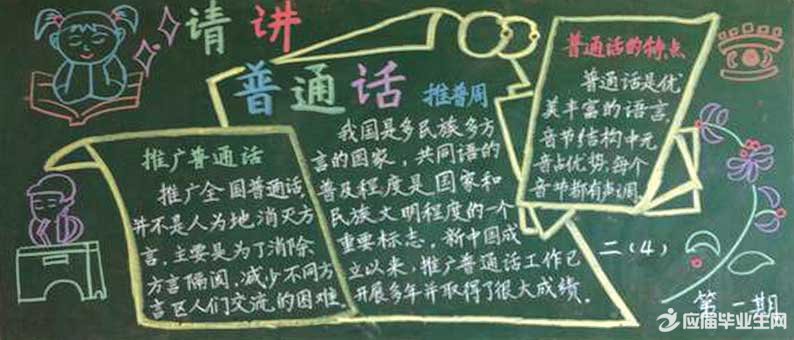 请讲
普通话
推普周
推广普通话
推广全国普通话,
并不是人为地消灭方
言,主要是为了消除
方言隔阂,减少不同方
言区人们交流的困难.
我国是多民族多方
言的国家,共同语的
普及程度是国家和
民族文明程度的一个
重要标志,新中国成
立以来,推广普通话工作已
开展多年并取得了很大成绩.
普通话的特点
普通话是优
美丰富的语言,
音节结构中元
音占优势,每个
音节都有声调.
二(4)
第一期
应届毕业生网